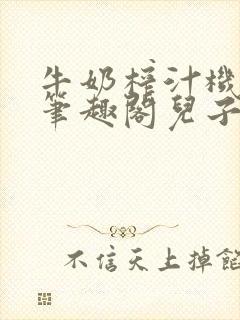 牛奶榨汁機
筆趣閣兒子
不信天上掉餡